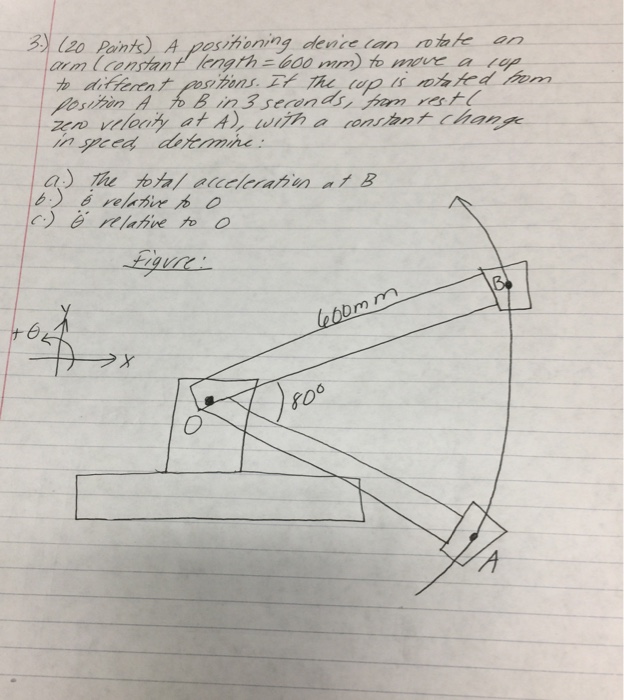 3.) (20 Points) A positioning device can rotate an
arm (constant length = 600 mm) to move a cup
to different positions. If the cup is rotated from
position A to B in 3 seconds, from rest (
zero velocity at A), with a constant change
in speed, determine:
a.) The total acceleration at B
b.) θ̇ relative to O
c.) θ̈ relative to O
Figure:
600mm
B
y
+θ
x
80°
O
A